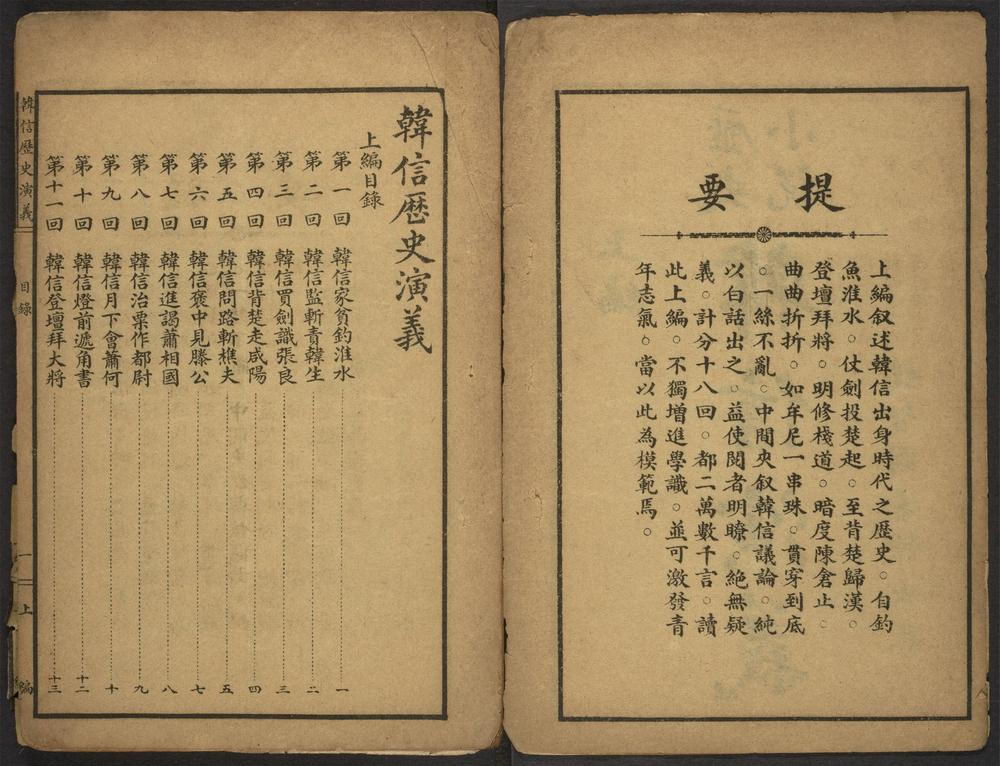 提要
上編叙述韓信出身時代之歷史。自釣
魚淮水。仗劍投楚起。至背楚歸漢。
登壇拜將。明修棧道。暗度陳倉止。
曲曲折折。如牟尼一串珠。貫穿到底
。一絲不亂。中間夾叙韓信議論。純
以白話出之。益使閱者明瞭。絕無疑
義。計分十八回。都二萬數千言。讀
此上編。不獨增進學識。並可激發青
年志氣。當以此為模範焉。
韓信歷史演義
上編目錄
第一回 韓信家貧釣淮水 一
第二回 韓信監斬責韓生 二
第三回 韓信買劍識張良 三
第四回 韓信背楚走咸陽 四
第五回 韓信問路斬樵夫 五
第六回 韓信褒中見滕公 七
第七回 韓信進謁蕭相國 八
第八回 韓信治粟作都尉 九
第九回 韓信月下會蕭何 十
第十回 韓信燈前遞角書 十二
第十一回 韓信登壇拜大將 十三
韓信歷史演義 目錄 一 上編